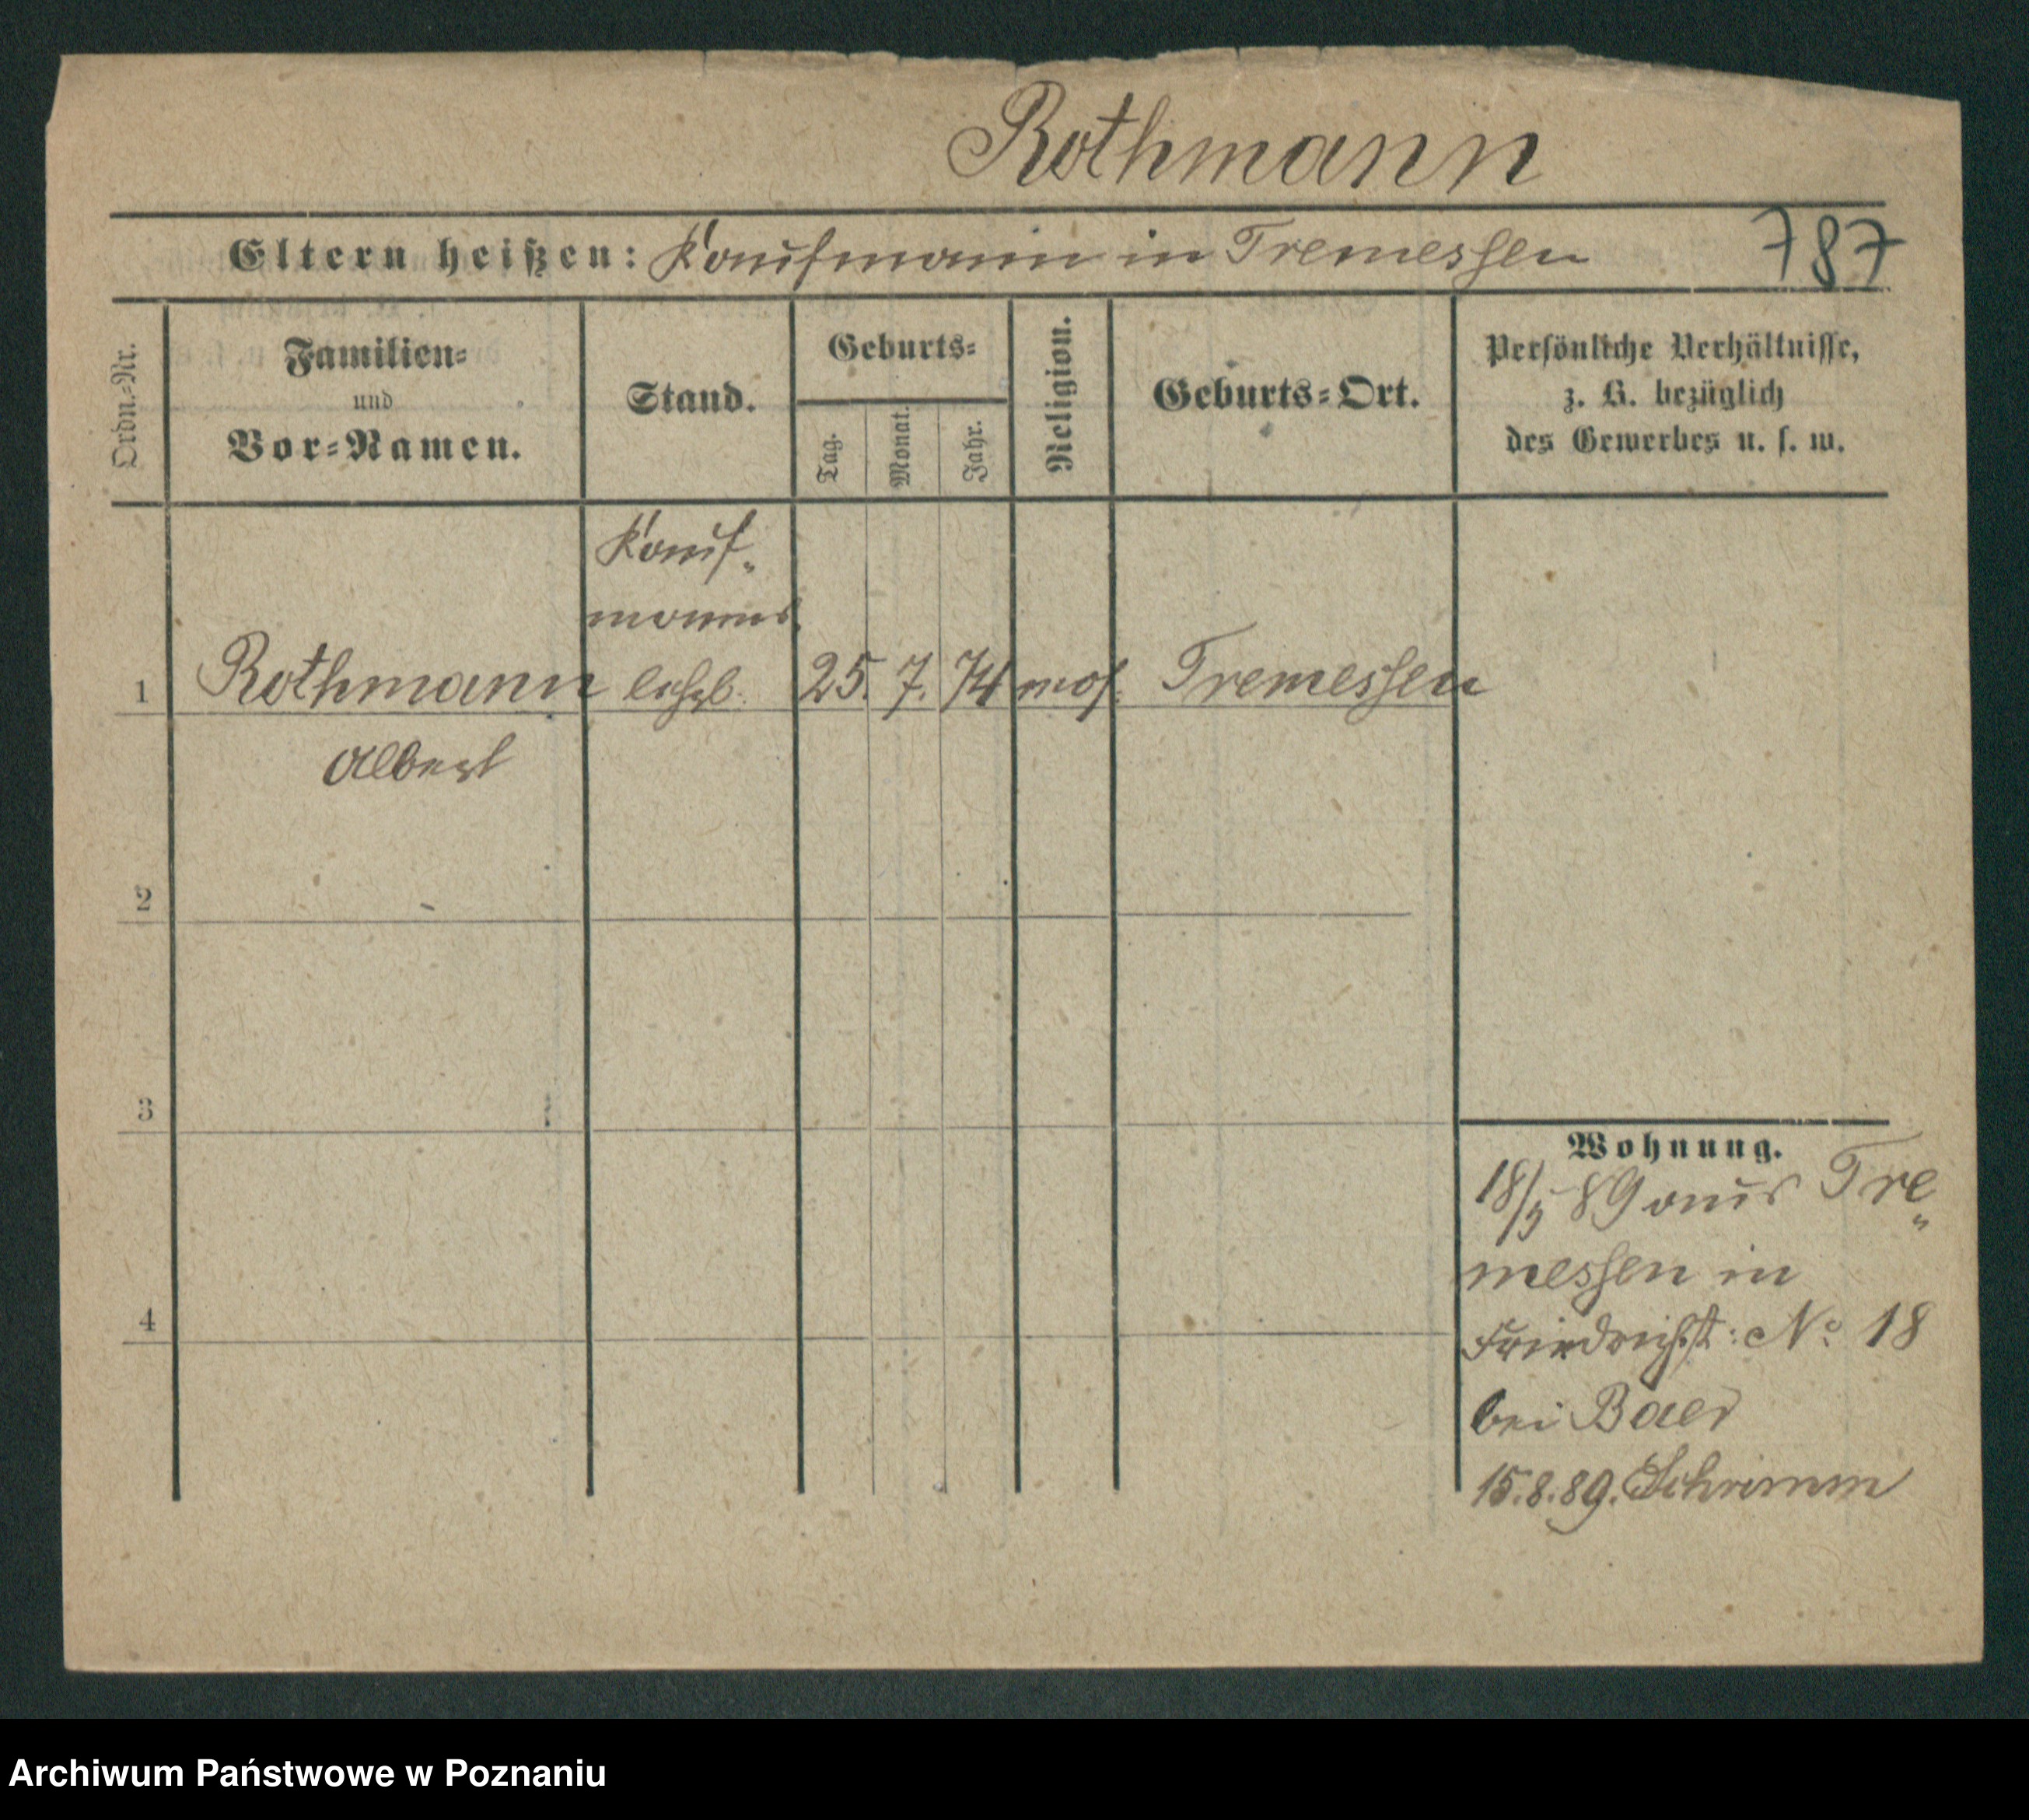 Rothmann
Eltern heißen: Kaufmann in Tremessen 787
Ordn.=Nr.
Familien=
und
Vor=Namen.
Stand.
Geburts=
Tag.
Monat.
Jahr.
Religion.
Geburts=Ort.
Persönliche Verhältnisse,
z. B. bezüglich
des Gewerbes u. s. w.
Kauf-
manns
1 Rothmann lehrl. 25. 7. 74 mos. Tremessen
Albert
2
3
4
Wohnung.
18/5 89 aus Tre-
messen in
Friedrichst: No 18
bei Baer
15.8.89. Schrimm
Archiwum Państwowe w Poznaniu